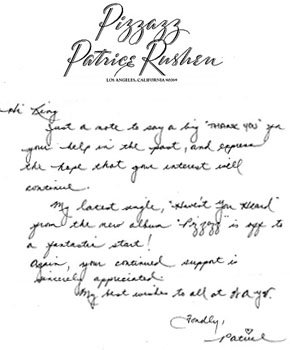 Pizzazz
Patrice Rushen
LOS ANGELES, CALIFORNIA
Hi
Just a note to say a big "THANK YOU" for
your help in the past, and express
the hope that your interest will
continue.
My latest single, "Haven't You Heard"
from the new album "Pizzazz" is off to
a fantastic start!
Again, your continued support is
sincerely appreciated.
My best wishes to all at
Fondly,
Patrice